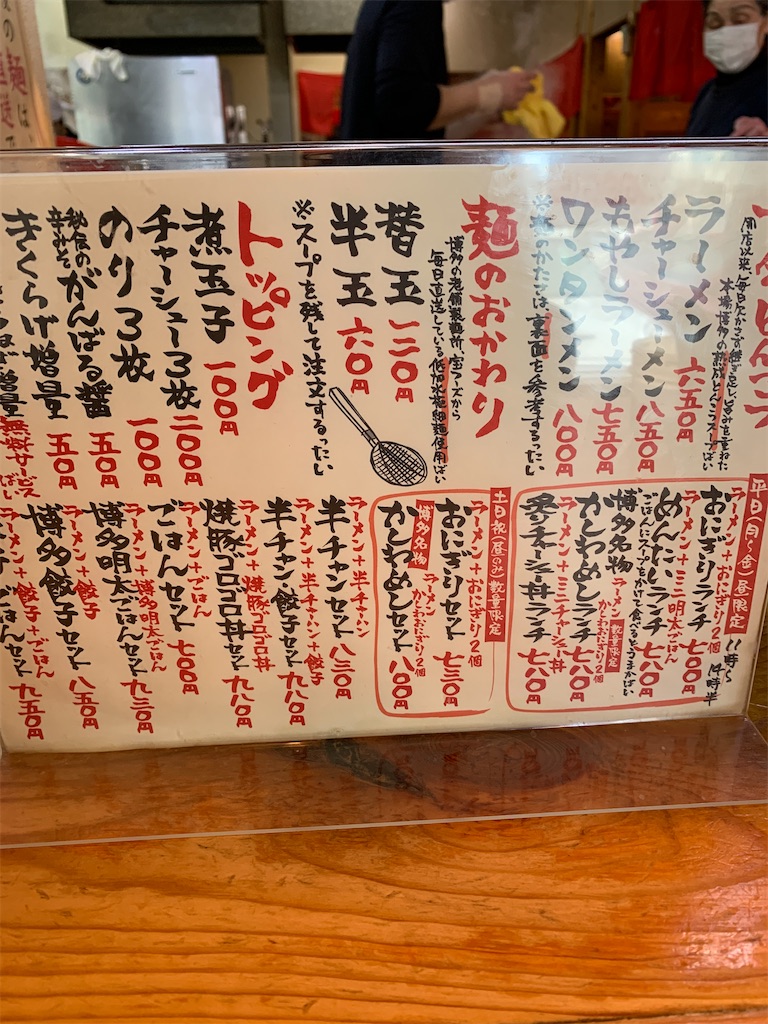 ラーメン 六五〇円
チャーシューメン 八五〇円
もやしラーメン 七五〇円
ワンタンメン 八〇〇円
麺のおかわり
博多の老舗製麺所、
毎日直送している低加水極細麺使用ばい
替玉 一三〇円
半玉 六〇円
※スープを残して注文するったい
トッピング
煮玉子 一〇〇円
チャーシュー3枚 二〇〇円
のり3枚 一〇〇円
秘伝のがんばる醤 五〇円
辛みそ
きくらげ増量 五〇円
無料サービスばい
平日(月〜金)昼限定 11時〜14時半
ラーメン+おにぎり2個
おにぎりランチ 七〇〇円
ラーメン+ミニ明太ごはん
めんたいランチ 七八〇円
ごはんにスープをかけて食べるとうまかばい
博多名物 ラーメン かしわおにぎり2個 数量限定
かしわめしランチ 七八〇円
ラーメン+ミニチャーシュー丼
炙りチャーシュー丼ランチ 七八〇円
土日祝(昼のみ)数量限定
ラーメン+おにぎり2個
おにぎりセット 七三〇円
博多名物 ラーメン かしわおにぎり2個
かしわめしセット 八〇〇円
ラーメン+半チャーハン
半チャンセット 八三〇円
ラーメン+半チャーハン+餃子
半チャン・餃子セット 九八〇円
ラーメン+焼豚ゴロゴロ丼
焼豚ゴロゴロ丼セット 九八〇円
ラーメン+ごはん
ごはんセット 七〇〇円
ラーメン+博多明太ごはん
博多明太ごはんセット 九三〇円
ラーメン+餃子
博多餃子セット 八五〇円
ラーメン+餃子+ごはん
ごはんセット 九五〇円